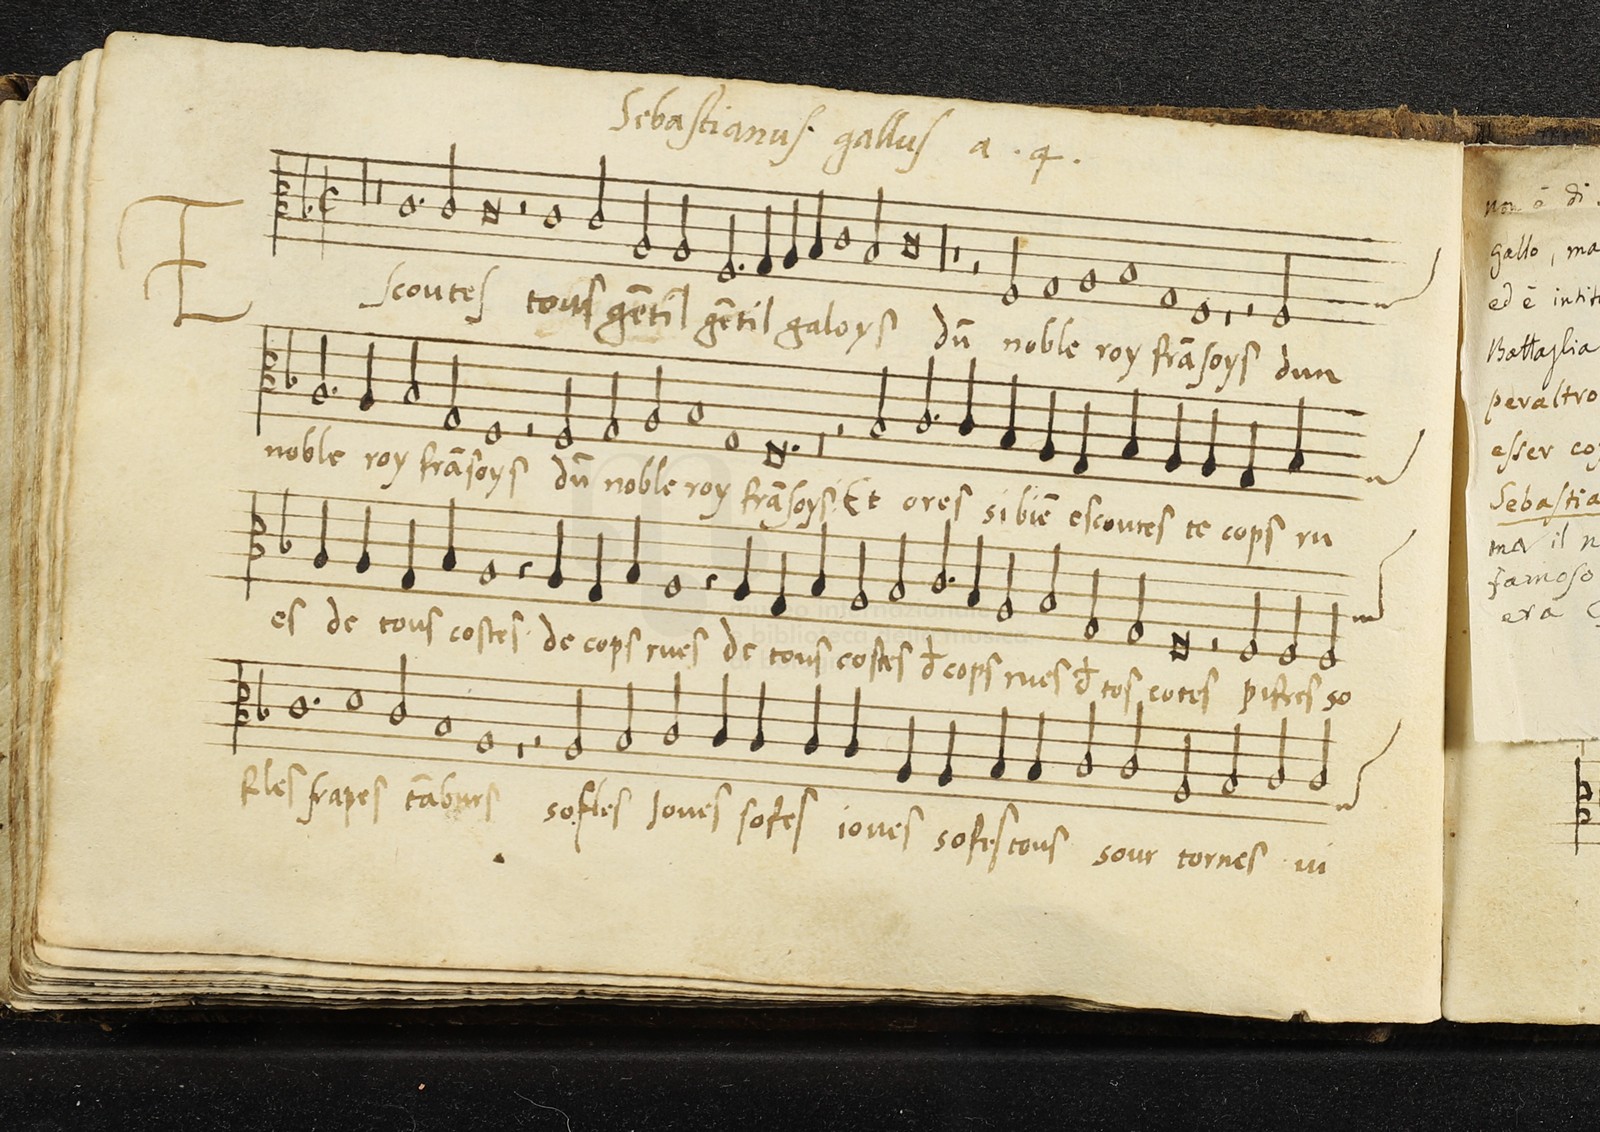 Sebastianus gallus a . 4 .
Escoutes tous gẽtil gẽtil galoys dũ noble roy frãsoys dun
noble roy frãsoys dũ noble roy frãsoys Et ores si biẽ escoutes te cops ru
es de tous costes de cops rues de tous costes đ cops rues đ tos cotes pifres so
fles frapes tãburs sofles Joues sofes ioues sofes tous sour tornes vi
non è di
Gallo, ma
ed è intito
Battaglia
peraltro
esser co
Sebastia
ma il n
famoso
era
museo internazionale
biblioteca della musica